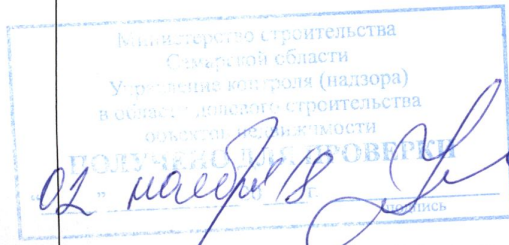 Министерство строительства
Самарской области
Управление контроля (надзора)
в области долевого строительства
объектов недвижимости
ПОЛУЧЕНО ДЛЯ ПРОВЕРКИ
"02" ноября 18 г.
подпись